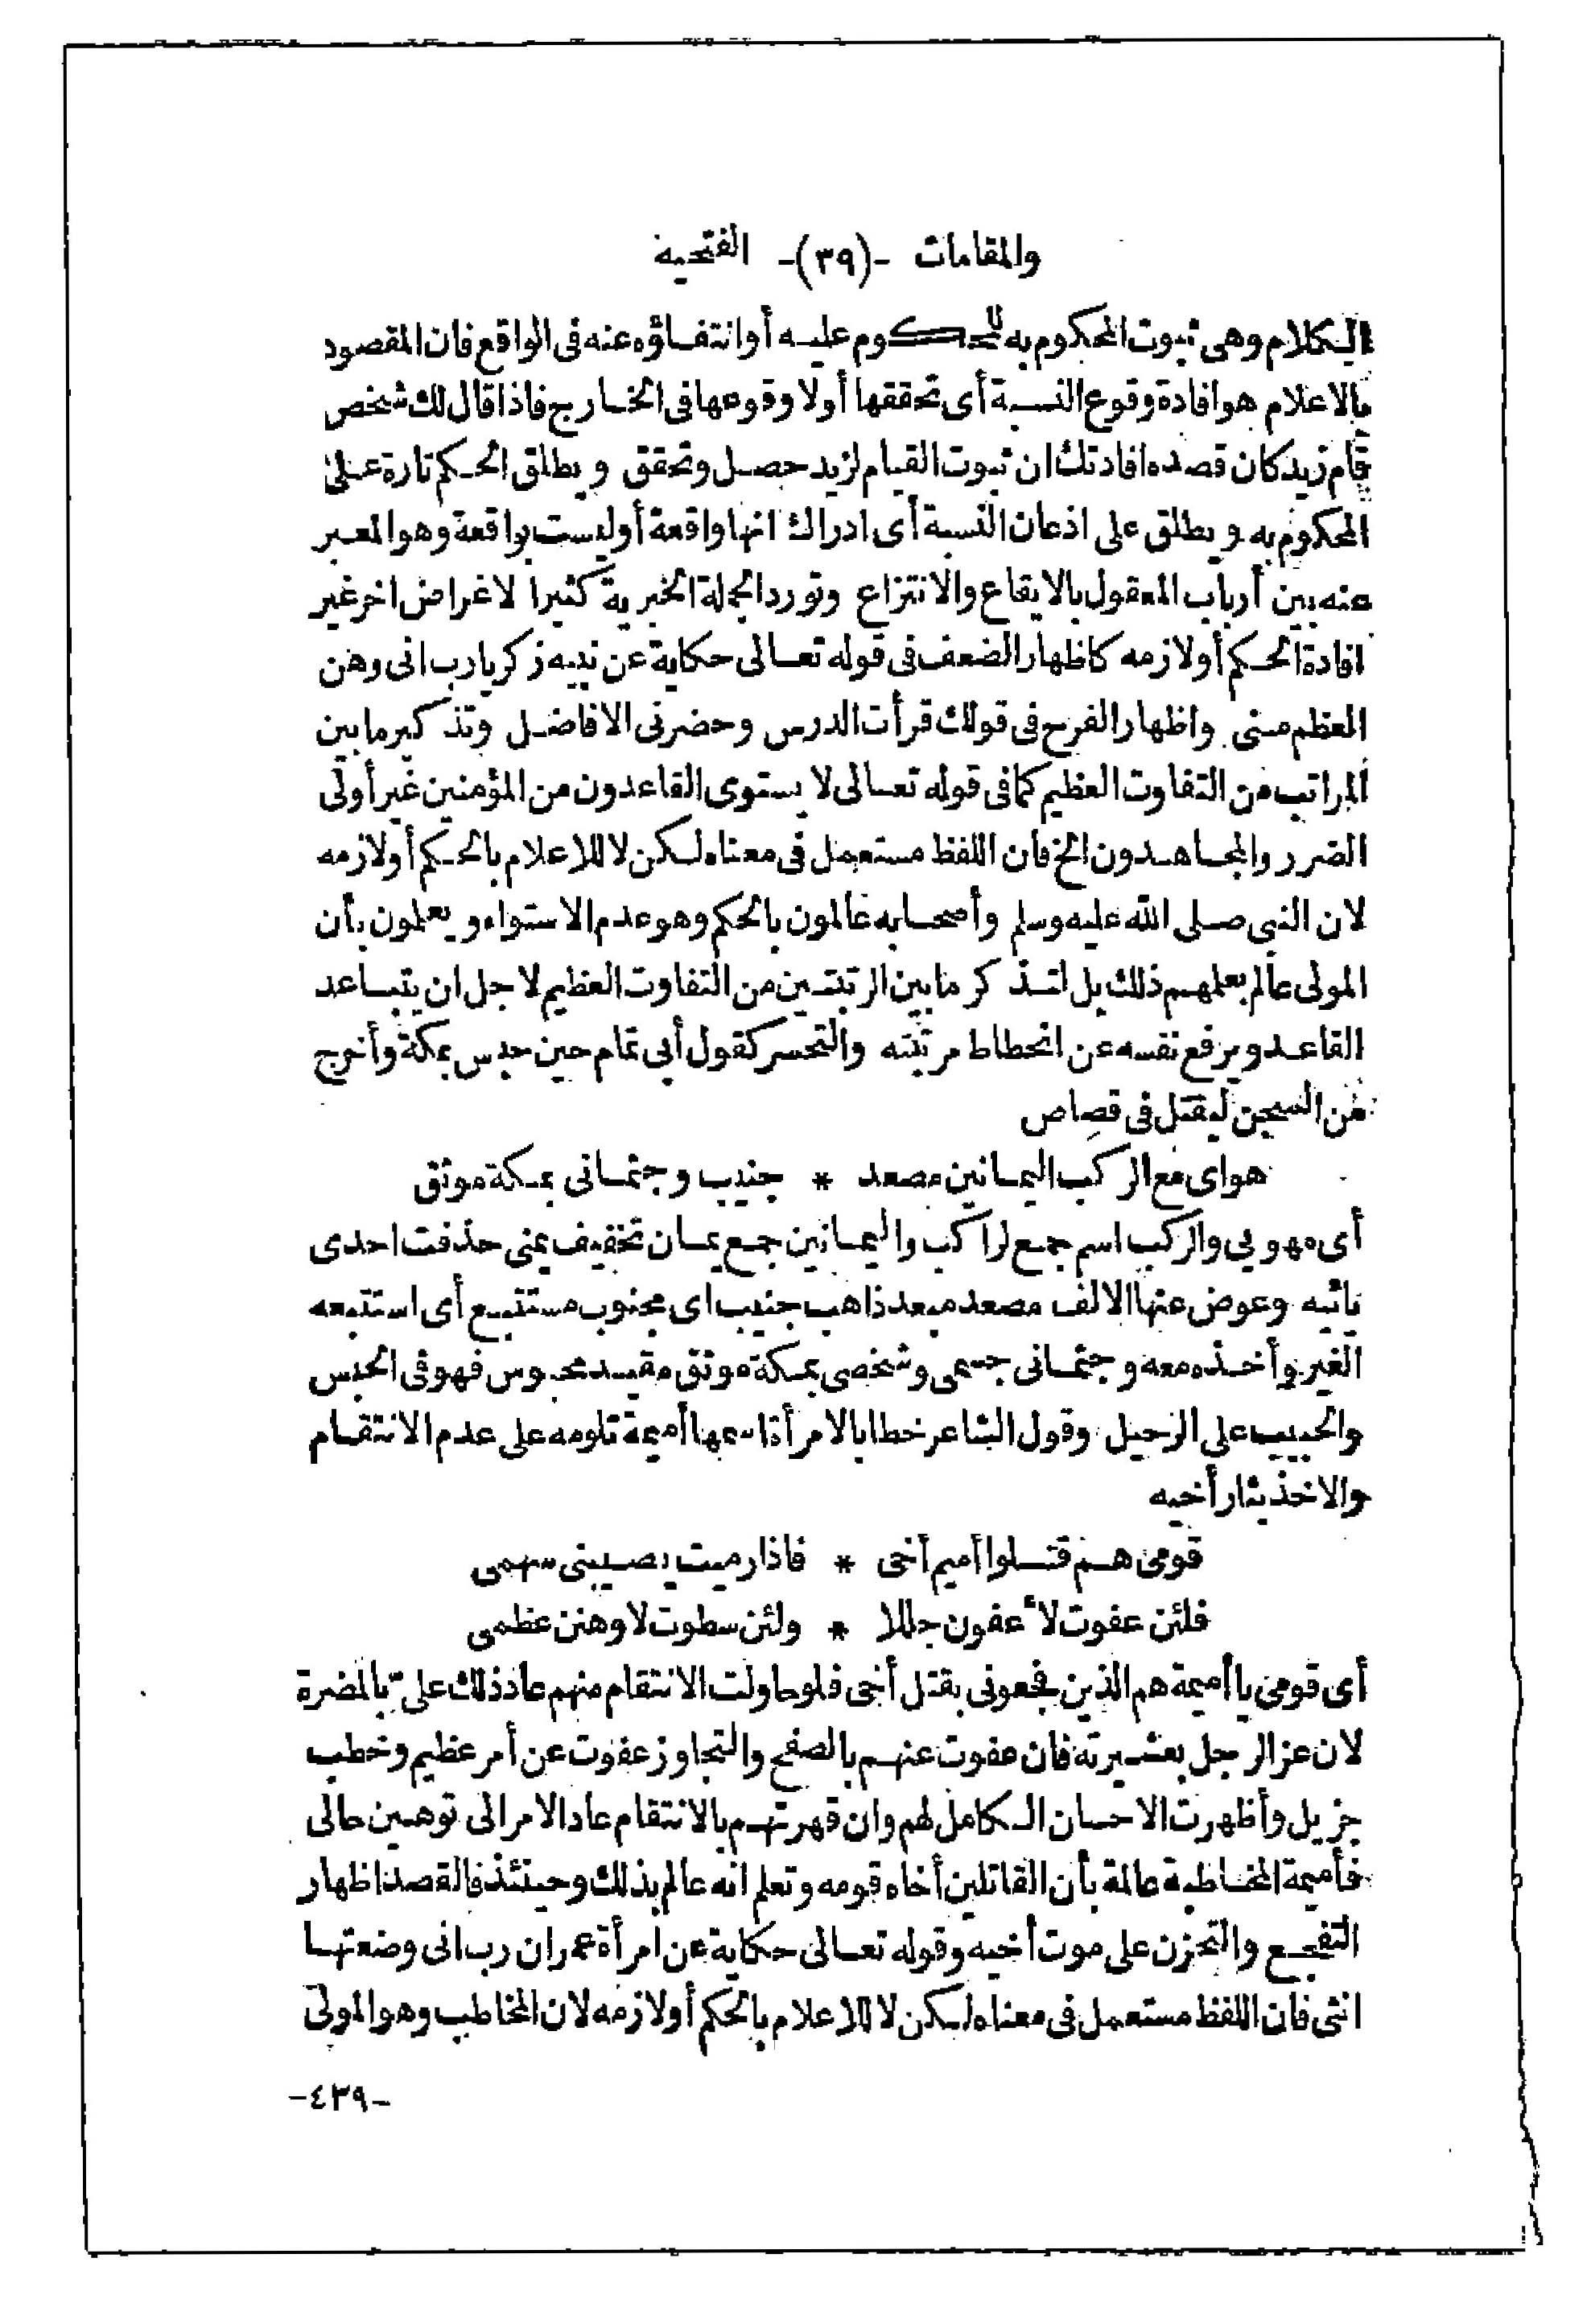 والمقامات -(٣٩)- الفتحيه
الكلام وهى ثبوت المحكوم به للمحكوم عليه أو انتفاؤه عنه فى الواقع فان المقصود
بالاعلام هو افادة وقوع النسبة أى تحققها أولا وقوعها فى الخارج فاذا قال لك شخص
قام زيد كان قصده افادتك ان ثبوت القيام لزيد حصل وتحقق ويطلق الحكم تارة على
المحكوم به ويطلق على اذعان النسبة أى ادراك انها واقعة أو ليست بواقعة وهو المعبر
عنه بين أرباب المعقول بالايقاع والانتزاع وتورد الجملة الخبرية كثيرا لاغراض اخر غير
افادة الحكم أو لازمه كاظهار الضعف فى قوله تعالى حكاية عن نبيه زكريا رب انى وهن
العظم منى واظهار الفرح فى قولك قرأت الدرس وحضرنى الافاضل وتذكير ما بين
المراتب من التفاوت العظيم كما فى قوله تعالى لا يستوى القاعدون من المؤمنين غير أولى
الضرر والمجاهدون الخ فان اللفظ مستعمل فى معناه لكن لا للاعلام بالحكم أو لازمه
لان النبي صلى الله عليه وسلم وأصحابه عالمون بالحكم وهو عدم الاستواء ويعلمون بأن
المولى عالم بعلمهم ذلك بل لتذكر ما بين الرتبتين من التفاوت العظيم لاجل ان يتباعد
القاعد ويرفع نفسه عن انحطاط مرتبته والتحسر كقول أبى تمام حين حبس بمكة وأخرج
من السجن ليقتل فى قصاص
هواى مع الركب اليمانين مصعد * جنيب وجثمانى بمكة موثق
أى مهويي والركب اسم جمع لراكب واليمانين جمع يمان تخفيف يمنى حذفت احدى
يائيه وعوض عنها الالف مصعد مبعد ذاهب جنيب اى مجنوب مستتبع أى استتبعه
الغير وأخذه معه وجثمانى جسمى وشخصى بمكة موثق مقيد محبوس فهو فى الحبس
والحبيب على الرحيل وقول الشاعر خطابا لامرأة اسمها أميمة تلومه على عدم الانتقام
والاخذ بثار أخيه
قومى هم قتلوا أميم أخى * فاذا رميت يصيبنى سهمى
فلئن عفوت لأعفون جللا * ولئن سطوت لاوهنن عظمى
أى قومى يا أميمة هم الذين فجعونى بقتل أخى فلو حاولت الانتقام منهم عاد ذلك علىّ بالمضرة
لان عز الرجل بعشيرته فان عفوت عنهم بالصفح والتجاوز عفوت عن أمر عظيم وخطب
جزيل وأظهرت الاحسان الكامل لهم وان قهرتهم بالانتقام عاد الامر الى توهين حالى
فأميمة المخاطبة عالمة بأن القاتلين أخاه قومه وتعلم انه عالم بذلك وحينئذ فالقصد اظهار
التفجع والتحزن على موت أخيه وقوله تعالى حكاية عن امرأة عمران رب انى وضعتها
انثى فان اللفظ مستعمل فى معناه لكن لا للاعلام بالحكم أو لازمه لان المخاطب وهو المولى
-٤٣٩-